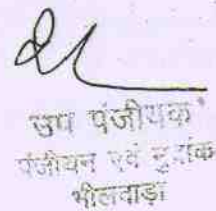 उप पंजीयक
पंजीयन एवं मुद्रांक
भीलवाड़ा